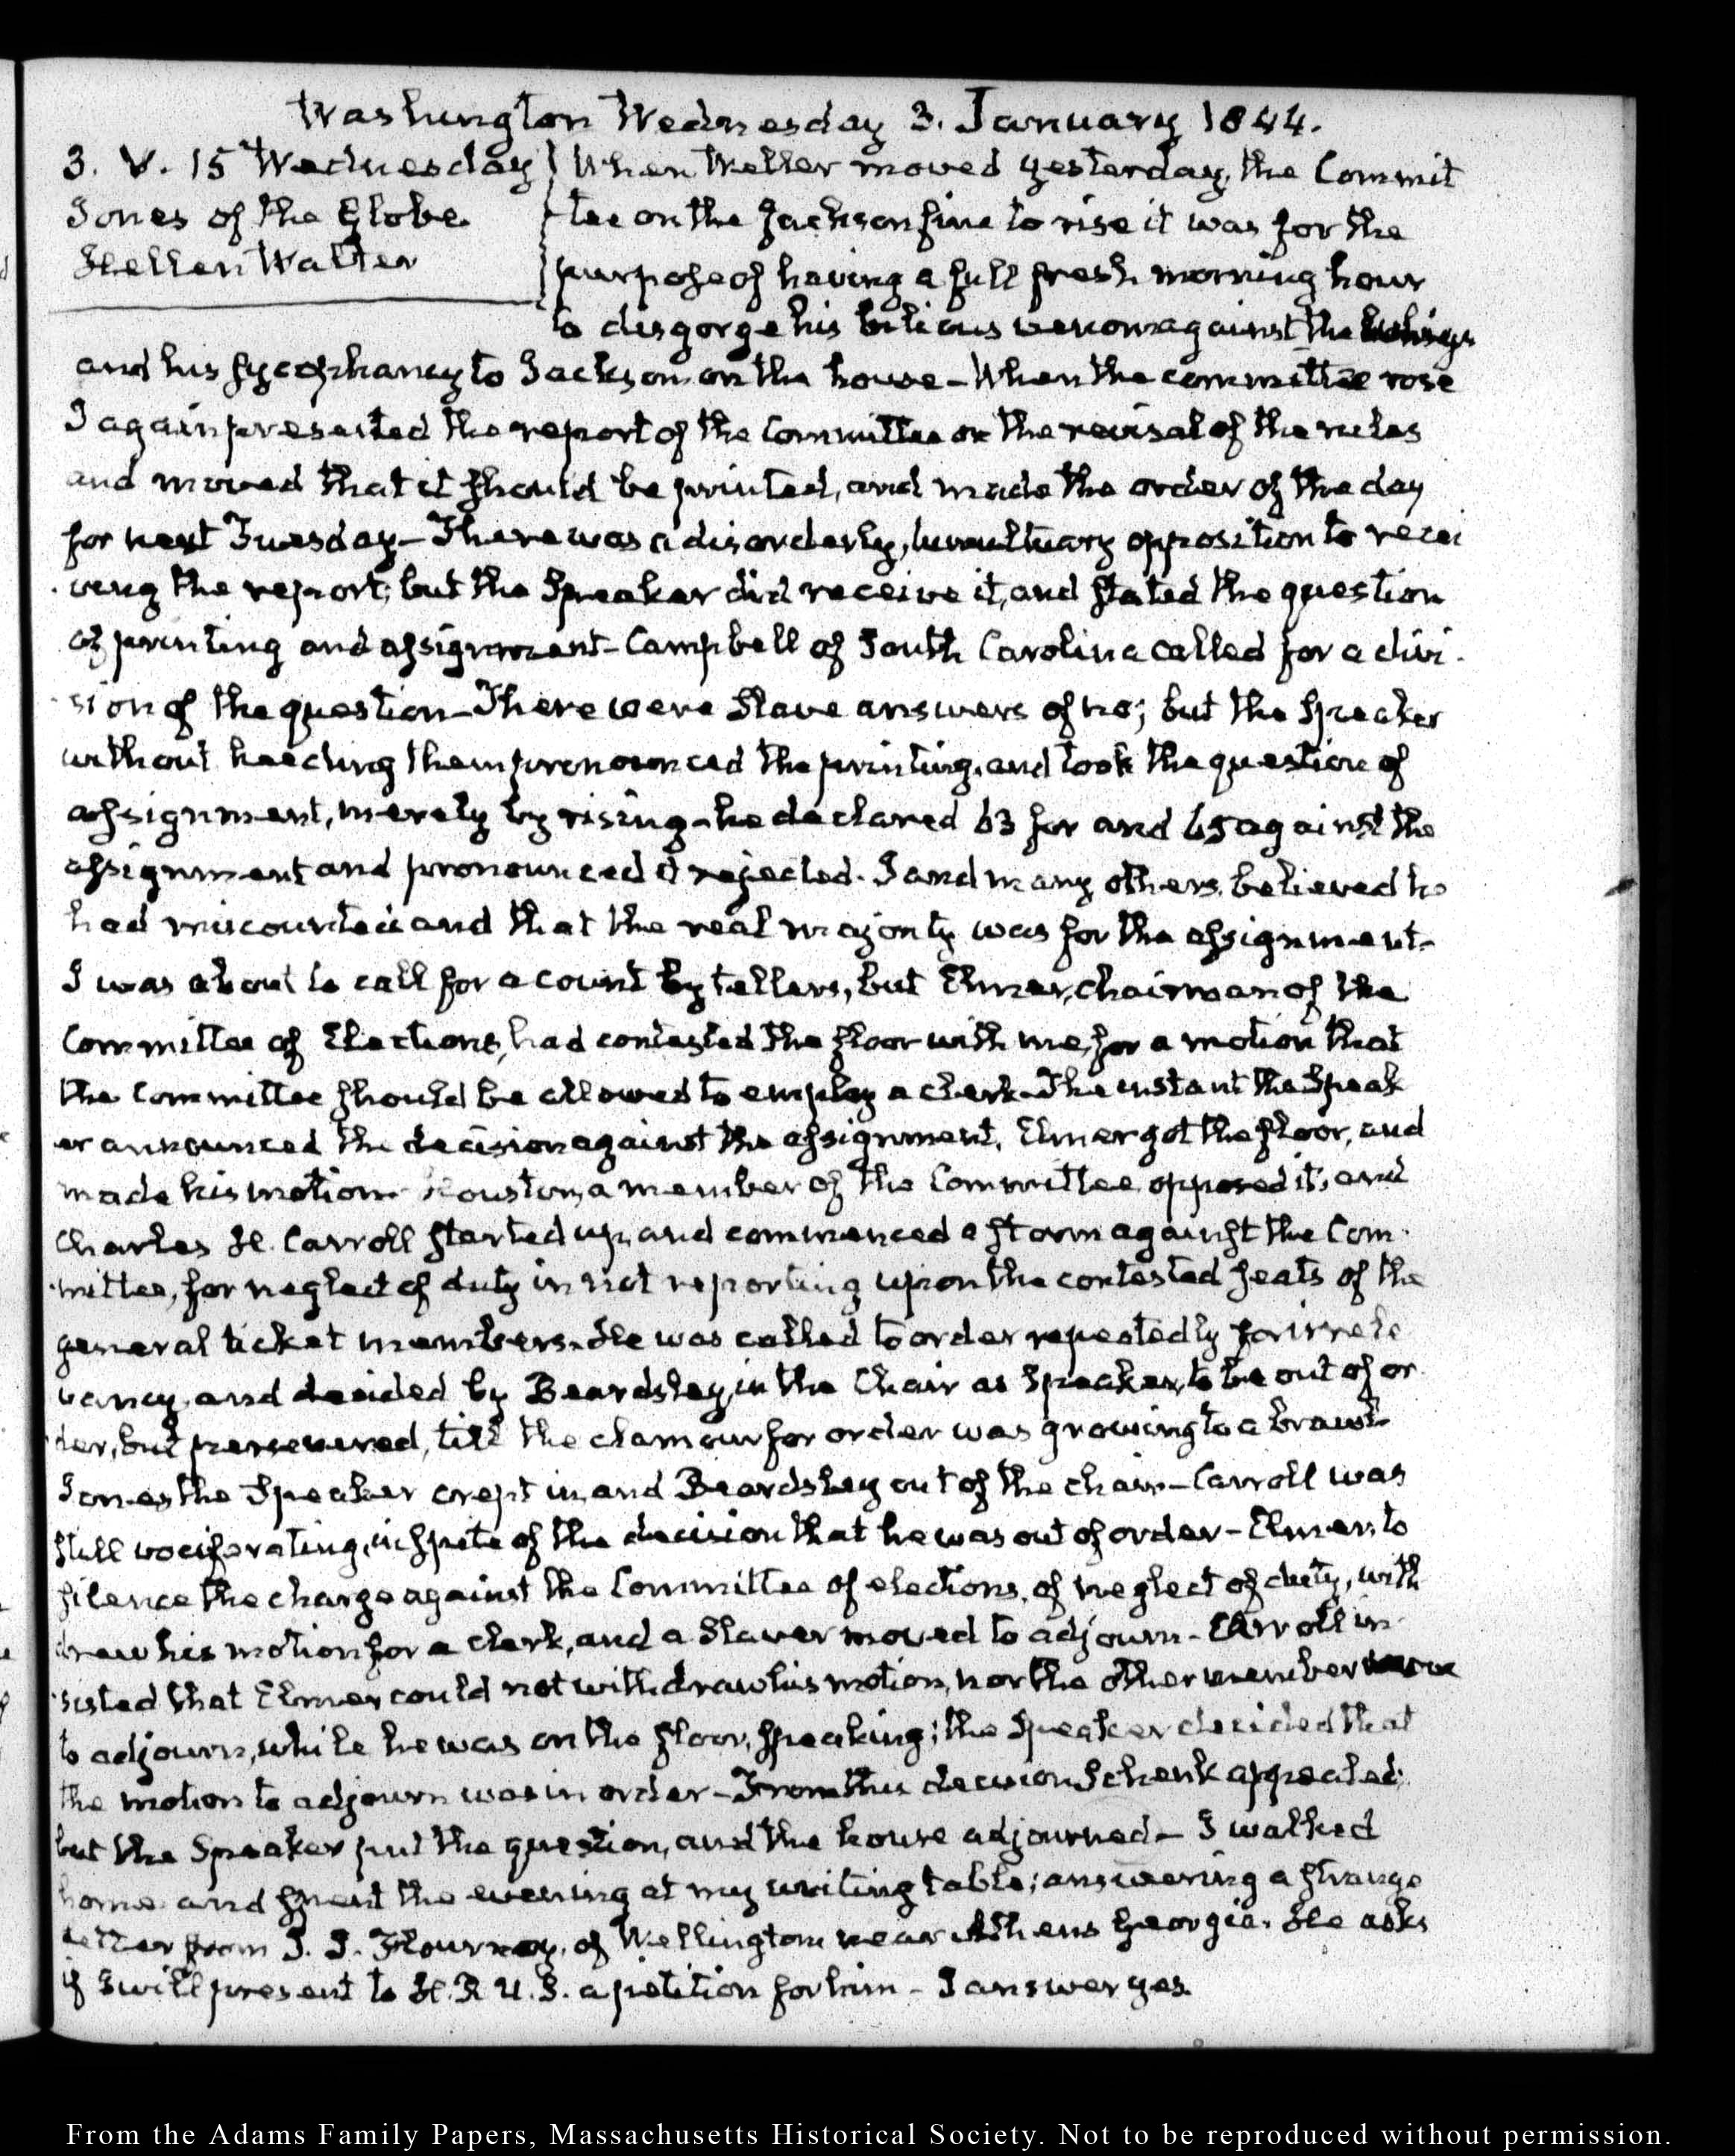 Washington Wednesday 3. January 1844.
3. V. 15 Wednesday
Jones of the Globe
Hellen Walter
When Weller moved yesterday, the Commit
tee on the Jackson fine to rise it was for the
purpose of having a full fresh morning hour
to disgorge his bilious venom against the
and his sycophancy to Jackson on the house – When the committee rose
I again presented the report of the Committee on the revisal of the rules
and moved that it should be printed, and made the order of the day
for next Tuesday – There was a disorderly, tumultuary opposition to recei
ving the report; but the Speaker did receive it, and stated the question
of printing and assignment – Campbell of South Carolina called for a divi
sion of the question – There were Slave answers of no; but the Speaker
without heeding them pronounced the printing, and took the question of
assignment, merely by rising – he declared 63 for and 65 against the
assignment and pronounced it rejected. I and many others, believed he
had miscounted and that the real majority was for the assignment –
I was about to call for a count by tellers, but Elmer, chairman of the
Committee of Elections, had contested the floor with me, for a motion that
the Committee should be allowed to employ a clerk – The instant the Speak
er announced the decision against the assignment, Elmer got the floor, and
made his motion – Houston, a member of the Committee opposed it, and
Charles H. Carroll started up, and commenced a storm against the Com
mittee, for neglect of duty in not reporting upon the contested seats of the
general ticket members. He was called to order repeatedly for irrele
vancy, and decided by Beardsley, in the Chair as Speaker, to be out of or
der, but persevered, till the clamour for order was growing to a brawl –
Jones the Speaker crept in, and Beardsley out of the chair – Carroll was
still vociferating, in spite of the decision that he was out of order – Elmer, to
silence the charge against the Committee of elections, of neglect of duty, with
drew his motion for a clerk, and a Slaver moved to adjourn – Carroll in
sisted that Elmer could not withdraw his motion, nor the other member move
to adjourn, while he was on the floor, speaking; the Speaker decided that
the motion to adjourn was in order – From this decision Schenk appealed;
but the Speaker put the question, and the house adjourned – I walked
home and spent the evening at my writing table; answering a strange
letter from J. J. Flournoy, of Wellington near Athens Georgia. He asks
if I will present to H. R. U. S. a petition for him – I answer yes.
From the Adams Family Papers, Massachusetts Historical Society. Not to be reproduced without permission.